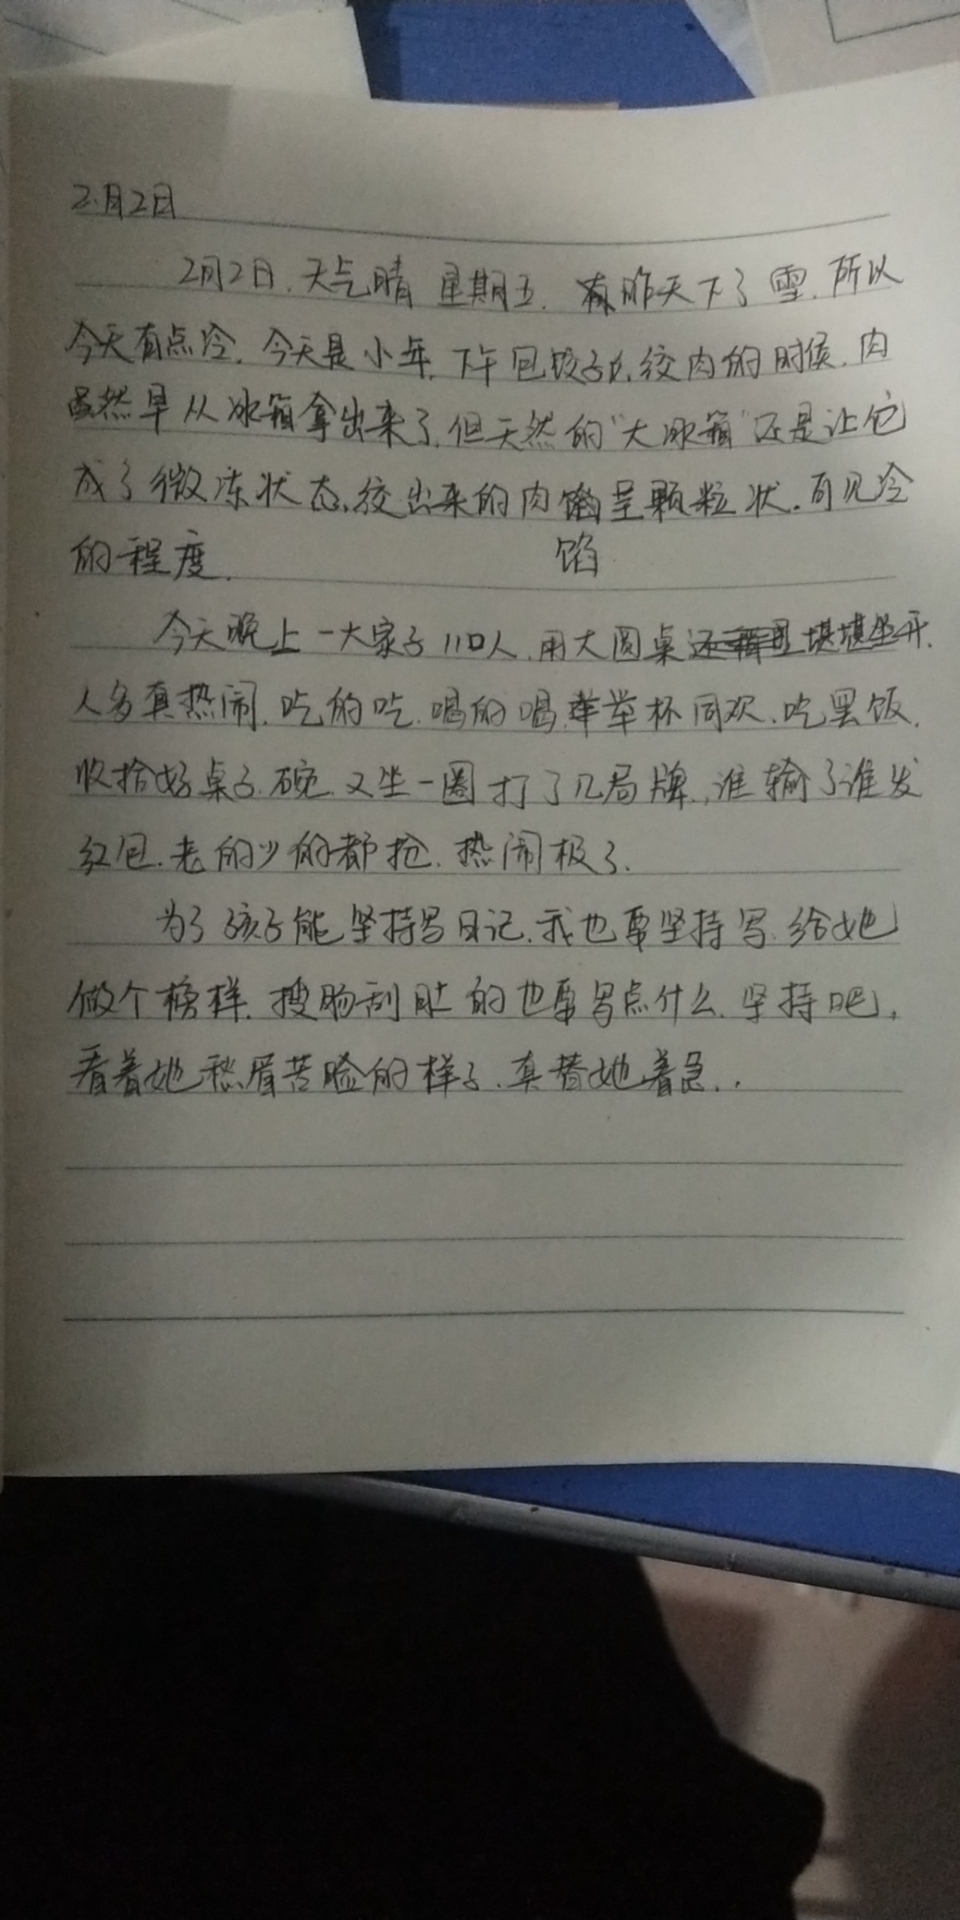 2月2日
2月2日.天气晴 星期五. 昨天下了雪.所以
今天有点冷.今天是小年.下午包饺子.绞肉的时候.肉
虽然早从冰箱拿出来了.但天然的“大冰箱”还是让它
成了微冻状态.绞出来的肉馅呈颗粒状.可见冷
的程度. 馅
今天晚上一大家子11口人.用大圆桌还 堪堪坐开.
人多真热闹.吃的吃.喝的喝.举杯同欢.吃罢饭.
收拾好桌子.碗.又坐一圈打了几局牌.,谁输了谁发
红包.老的少的都抢.热闹极了.
为了孩子能坚持写日记.我也要坚持写.给她
做个榜样.搜肠刮肚的也要写点什么.坚持吧,
看着她愁眉苦脸的样子.真替她着急..